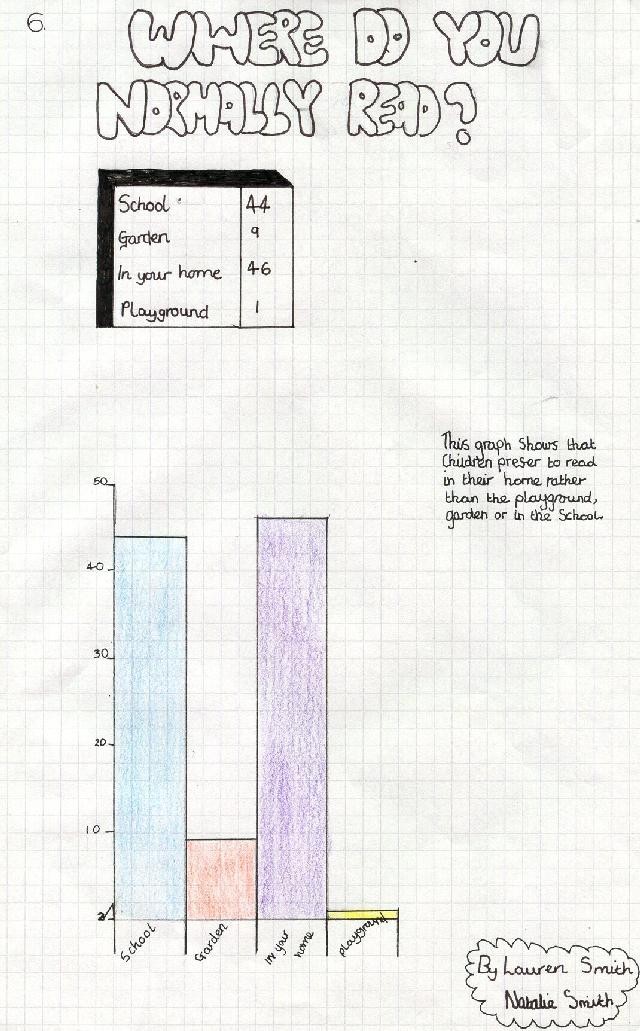 6.
WHERE DO YOU
NORMALLY READ?
School 44
Garden 9
In your home 46
Playground 1
This graph shows that
Children preser to read
in their home rather
than the playground,
garden or in the School.
50
40
30
20
10
School
Garden
In your
home
playground
By Lauren Smith
Natalie Smith